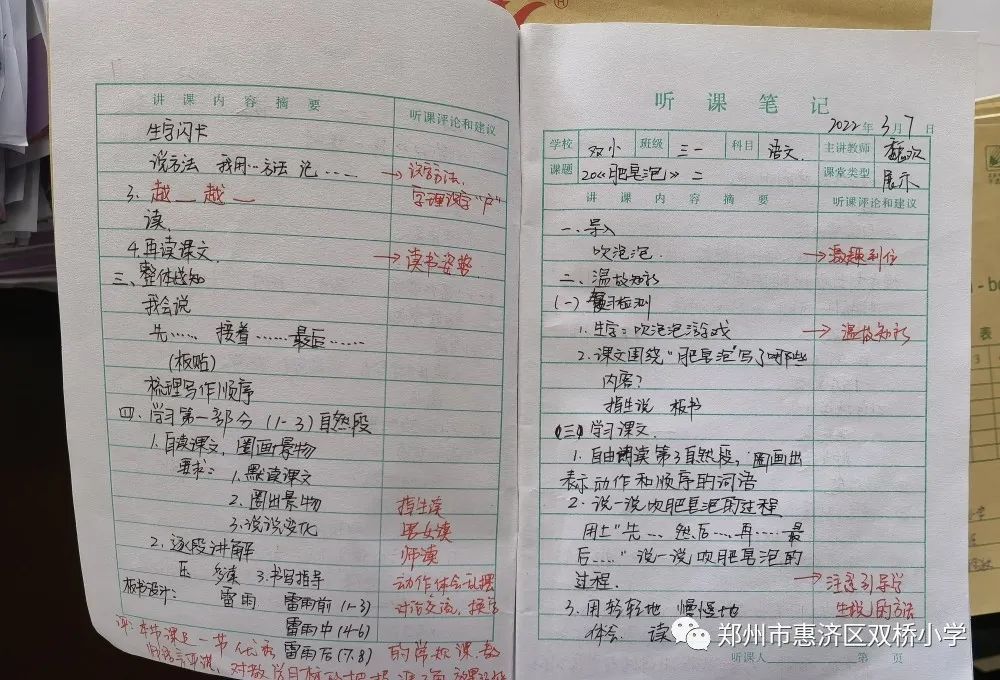 讲课内容摘要
听课评论和建议
生字闪卡
说方法 我用…方法 记……
→识字方法.
3. 越＿越＿
字理识字“户”
读.
4.再读课文.
→读书姿势.
三、整体感知
我会说
先…… 接着……最后……
(板贴)
梳理写作顺序
四、学习第一部分 (1-3)自然段
1.自读课文，圈画景物
要求： 1.默读课文
2.圈出景物
指生读
3.说说变化
男女读
2.逐段讲解
师读
压 乱 3.书写指导
动作体会乱摆
板书设计： 雷雨 雷雨前(1-3)
讨论交流，
雷雨中(4-6)
评：本节课是一节
雷雨后(7.8)
的常规课
听课笔记
2022年3月7日
学校 双小 班级 三一 科目 语文 主讲教师
课题 20《肥皂泡》二 课堂类型 展示
讲课内容摘要
听课评论和建议
一.导入
吹泡泡.
→激趣到位
二.温故知新
(一) 复习检测
1.生字：吹泡泡游戏
→温故知新
2.课文围绕“肥皂泡”写了哪些
内容？
指生说 板书
(三)学习课文.
1.自由朗读第3自然段，圈画出
表示动作和顺序的词语
2.说一说吹肥皂泡的过程
用上“先…，然后…，再……最
后……”说一说吹肥皂泡的
过程.
→注重引导学
3.用轻轻地 慢慢地
生说的方法
体会. 读
听课人 第 页
郑州市惠济区双桥小学